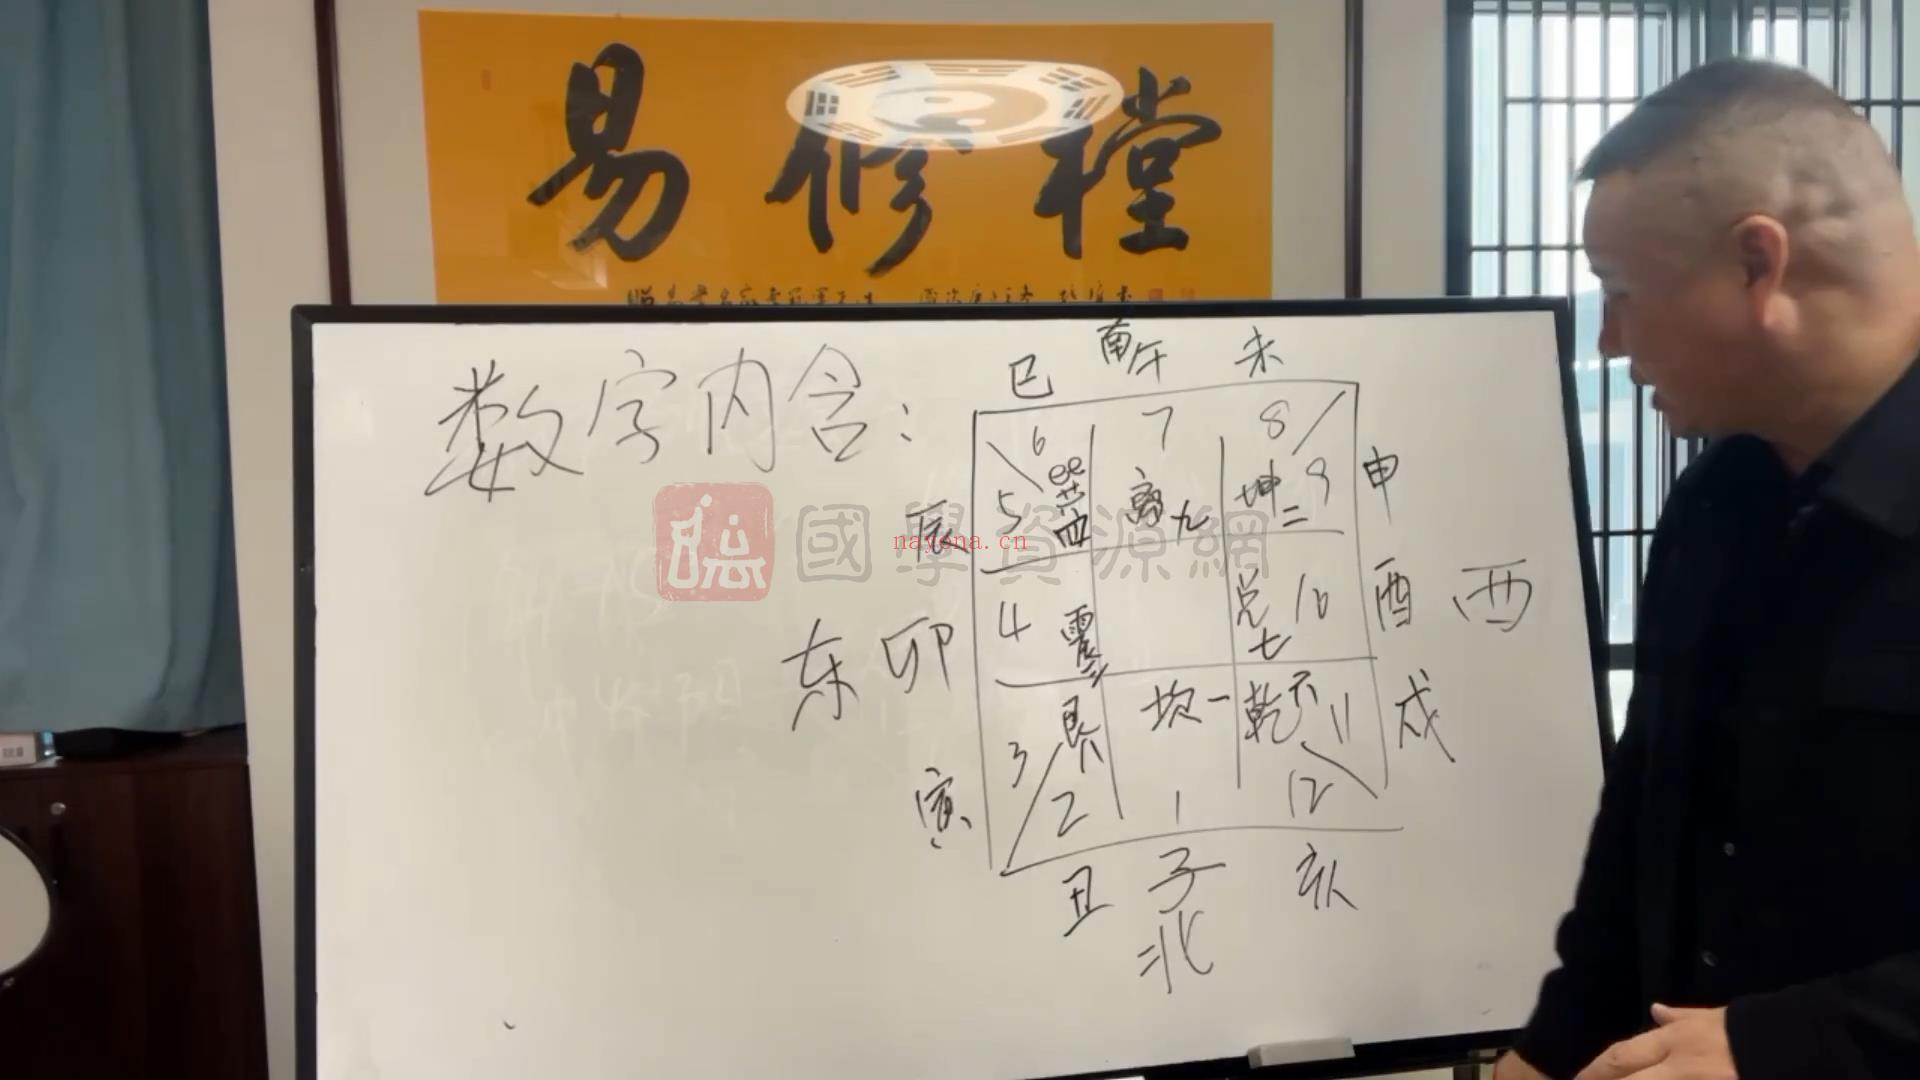 易修樘
数字内含:
巳 南午 未
6 7 8
辰 5 巽四 离九 坤二 9 申
國學資源網
nayona.cn
东 卯 4 震三 兑七 10 酉 西
寅 3 艮八 坎一 乾六 11 戌
2 1 12
丑 子 亥
北